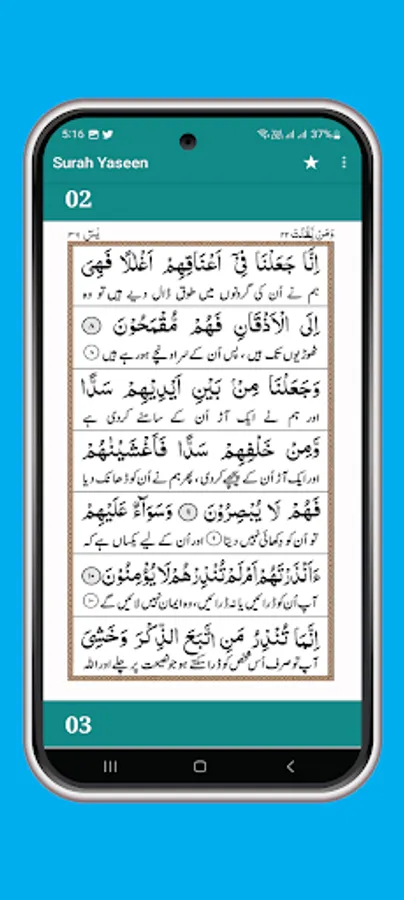 5:16 37%
Surah Yaseen
02
وَمَنْ يَّقْنُتْ ٢٢ يٰسٓ ٣٦
اِنَّا جَعَلْنَا فِیْۤ اَعْنَاقِهِمْ اَغْلٰلًا فَهِیَ
ہم نے اُن کی گردنوں میں طوق ڈال دیے ہیں تو وہ
اِلَى الْاَذْقَانِ فَهُمْ مُّقْمَحُوْنَ ۝٨
ٹھوڑیوں تک ہیں، پس اُن کے سر اونچے ہو رہے ہیں
وَجَعَلْنَا مِنْۢ بَیْنِ اَیْدِیْهِمْ سَدًّا
اور ہم نے ایک آڑ اُن کے سامنے کردی ہے
وَّمِنْ خَلْفِهِمْ سَدًّا فَاَغْشَیْنٰهُمْ
اور ایک آڑ اُن کے پیچھے کردی، پھر ہم نے اُن کو ڈھانک دیا
فَهُمْ لَا یُبْصِرُوْنَ ۝٩ وَسَوَآءٌ عَلَیْهِمْ
تو اُن کو دِکھائی نہیں دیتا اور اُن کے لیے یکساں ہے کہ
ءَاَنْذَرْتَهُمْ اَمْ لَمْ تُنْذِرْهُمْ لَا یُؤْمِنُوْنَ ۝١٠
آپ اُن کو ڈرائیں یا نہ ڈرائیں، وہ ایمان نہیں لائیں گے
اِنَّمَا تُنْذِرُ مَنِ اتَّبَعَ الذِّكْرَ وَخَشِیَ
آپ تو صرف اُس شخص کو ڈرا سکتے ہو جو نصیحت پر چلے اور اللہ
03